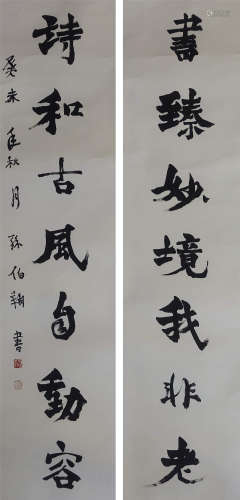 書臻妙境我非老
詩和古風自動容
癸未年秋月孫伯翔書